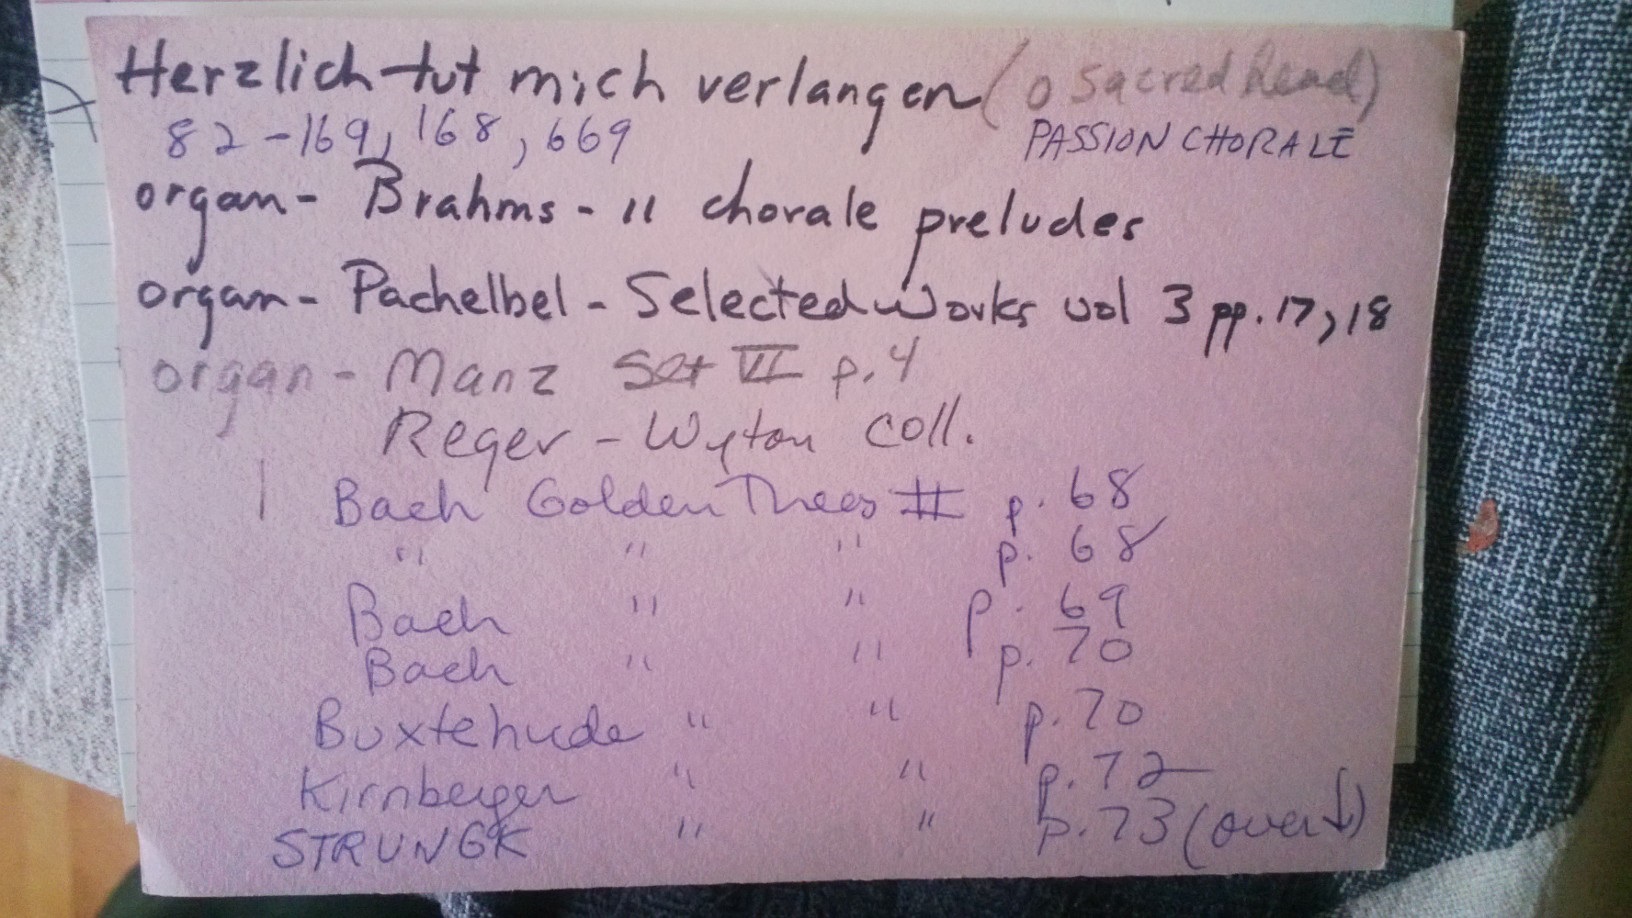 Herzlich tut mich verlangen (O Sacred Head)
82-169, 168, 669 PASSION CHORALE
organ - Brahms - 11 chorale preludes
organ - Pachelbel - Selected Works vol 3 pp. 17, 18
organ - Manz Set VI p. 4
Reger - Wyton coll.
Bach Golden Threes # p. 68
" " " p. 68
Bach " " p. 69
Bach " " p. 70
Buxtehude " " p. 70
Kirnberger " " p. 72
STRUNGK " " p. 73 (over ↓)